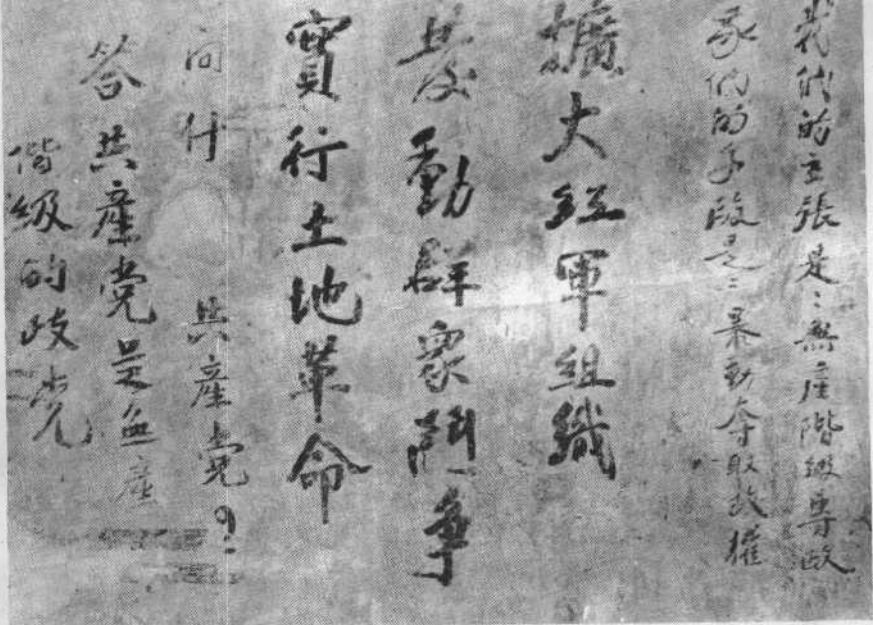 我們的主張是:無產階級專政
我們的手段是:暴動奪取政權
擴大紅軍組織
發動群衆鬥爭
實行土地革命
問什 共產党?
答共產党是無產
階級的政党